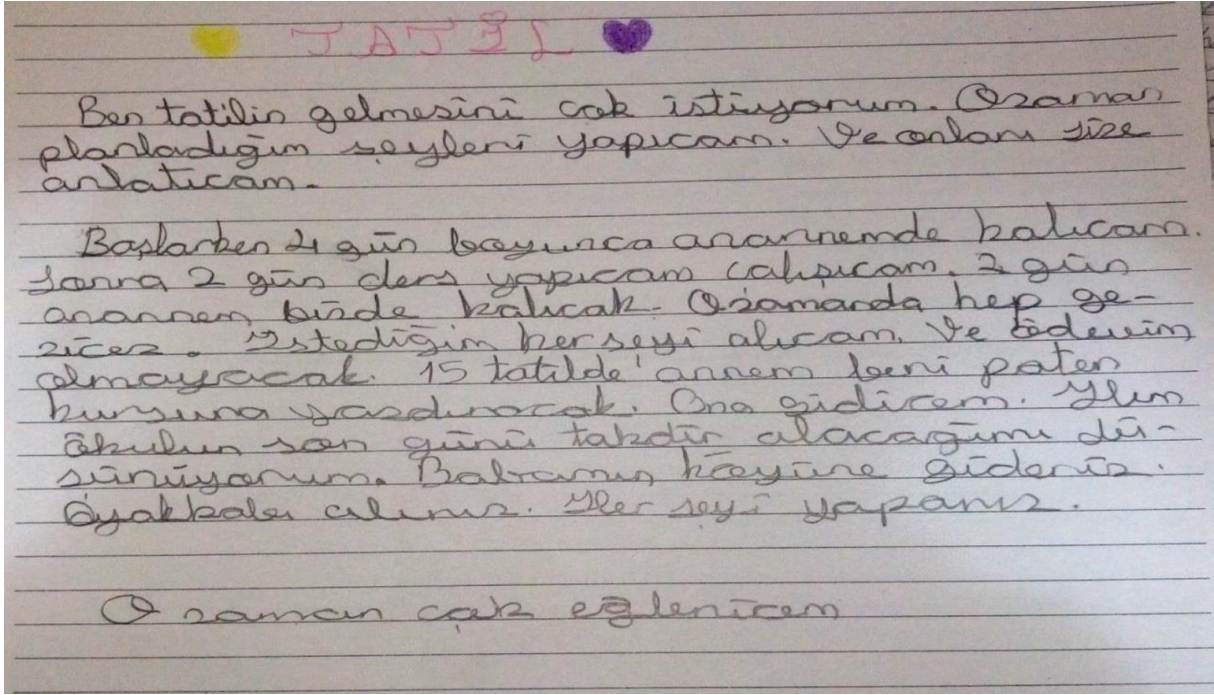 TATİL
Ben tatilin gelmesini çok istiyorum. Ozaman
planladığım şeyleri yapıcam. Ve onları size
anlatıcam.
Başlarken 4 gün boyunca anannemde kalıcam.
Sonra 2 gün ders yapıcam calışıcam. 2 gün
anannem bizde kalıcak. Ozamanda hep ge-
zicez. İstediğim herşeyi alıcam. Ve ödevim
olmayacak. 15 tatilde annem beni paten
kursuna yazdıracak. Ona gidicem. Hem
okulun son günü takdir alacağımı dü-
şünüyorum. Babamın köyüne gideriz.
Ayakkabı alırız. Her şeyi yaparız.
O zaman çok eğlenicem